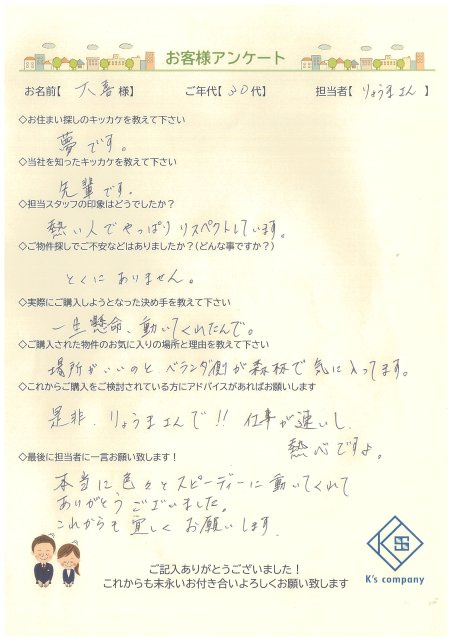 お客様アンケート
お名前【 大喜 様】 ご年代【 30 代】 担当者【 りょうまエん 】
◇お住まい探しのキッカケを教えて下さい
夢です。
◇当社を知ったキッカケを教えて下さい
先輩です。
◇担当スタッフの印象はどうでしたか?
熱い人でやっぱりリスペクトしています。
◇ご物件探しでご不安などはありましたか?(どんな事ですか?)
とくにありません。
◇実際にご購入しようとなった決め手を教えて下さい
一生懸命、動いてくれたんで。
◇ご購入された物件のお気に入りの場所と理由を教えて下さい
場所がいいのと、ベランダ側が森林で気に入ってます。
◇これからご購入をご検討されている方にアドバイスがあればお願いします
是非、りょうまエんで!! 仕事が速いし、
熱心ですよ。
◇最後に担当者に一言お願い致します!
本当に色々とスピーディーに動いてくれて
ありがとうございました。
これからも宜しくお願いします。
ご記入ありがとうございました!
これからも末永いお付き合いよろしくお願い致します
K's company